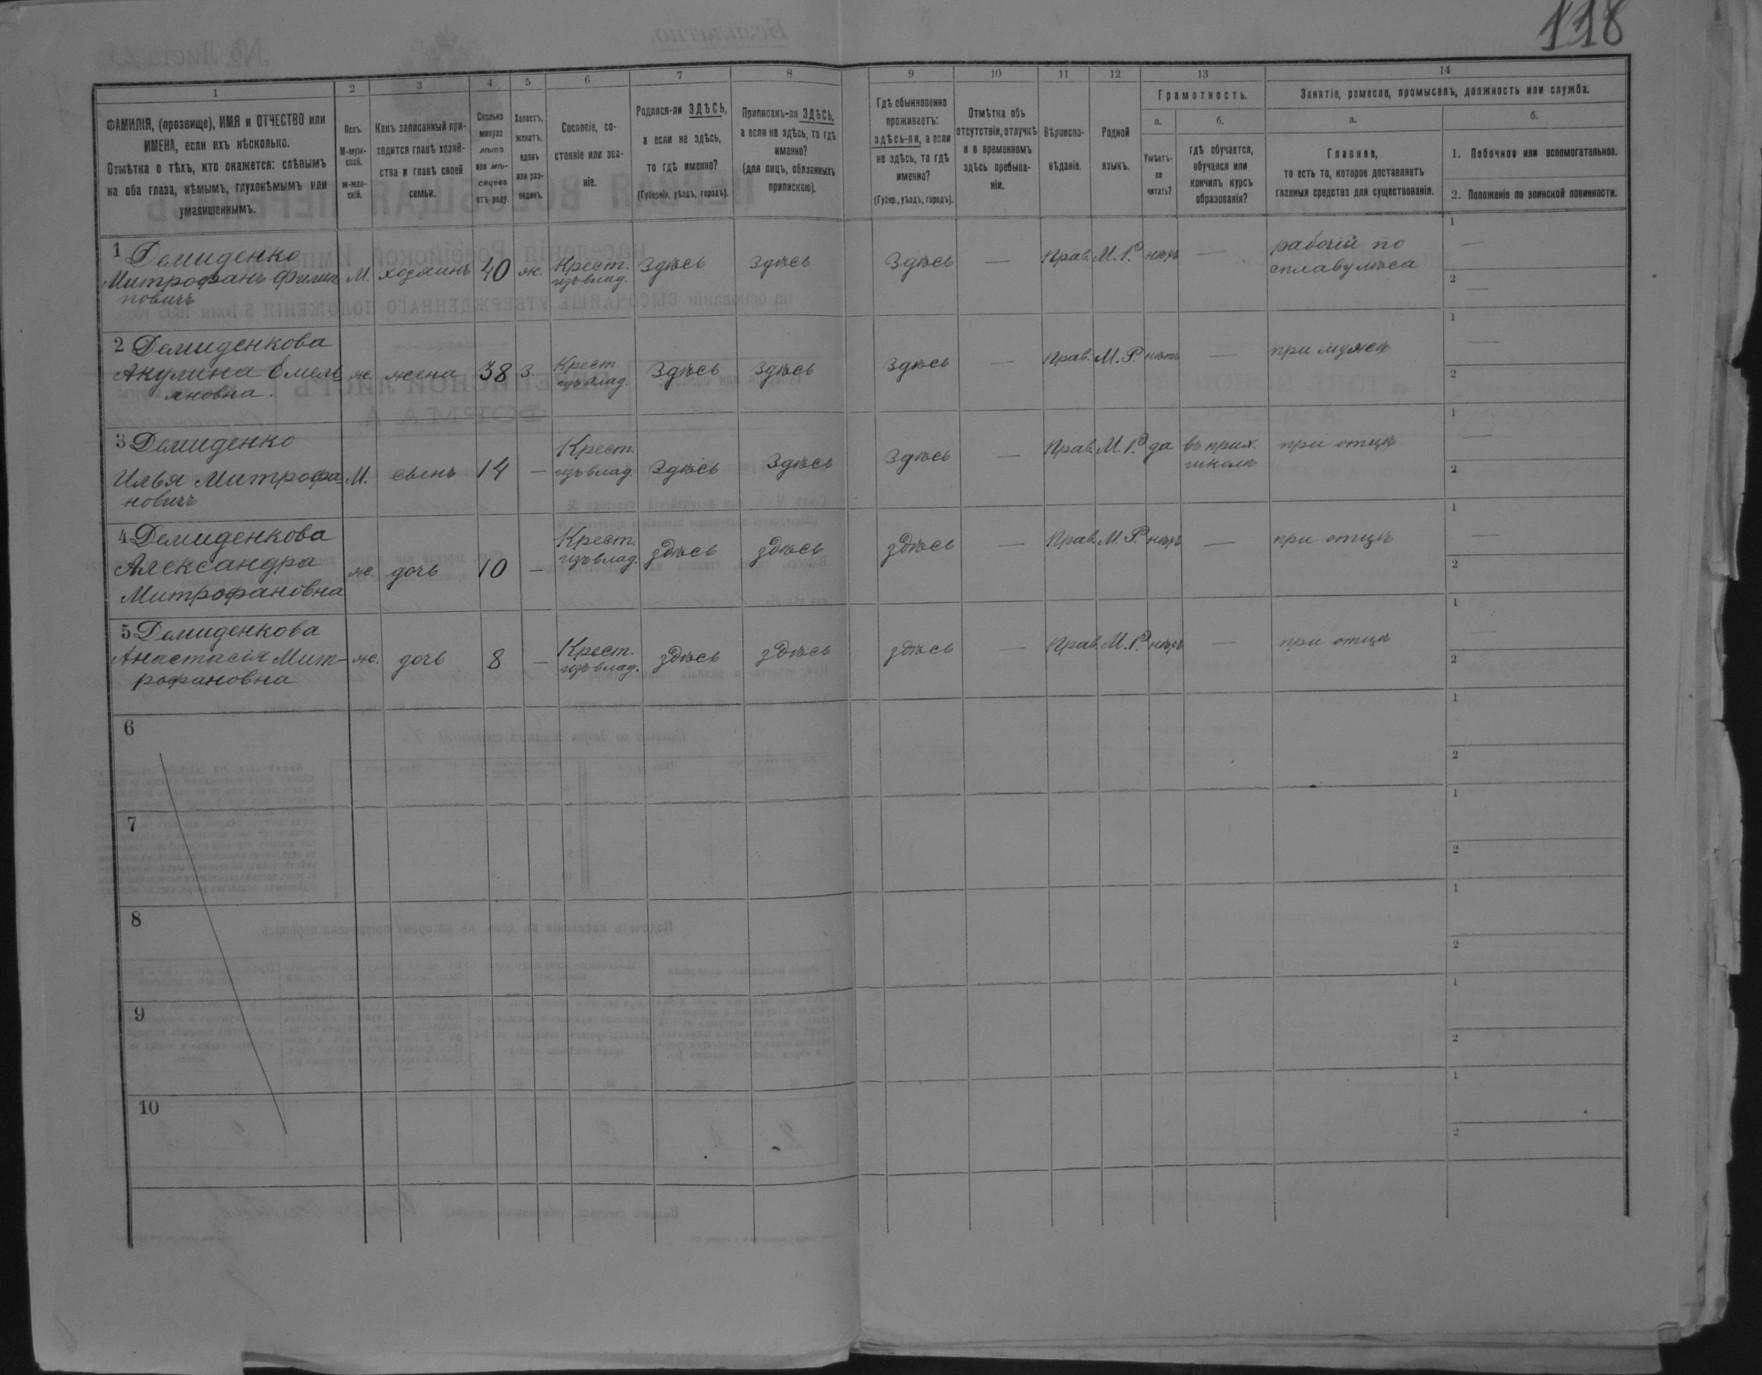 118
1
2
3
4
5
6
7
8
9
10
11
12
13
14
ФАМИЛІЯ, (прозвище), ИМЯ и ОТЧЕСТВО или
ИМЕНА, если ихъ нѣсколько.
Отмѣтка о тѣхъ, кто окажется: слѣпымъ
на оба глаза, нѣмымъ, глухонѣмымъ или
умалишеннымъ.
Полъ.
М-муж-
ской.
ж-жен-
скій.
Какъ записанный при-
ходится главѣ хозяй-
ства и главѣ своей
семьи.
Сколько
минуло
лѣтъ
или мѣ-
сяцевъ
отъ роду.
Холостъ,
женатъ,
вдовъ
или раз-
веденъ.
Сословіе, со-
стояніе или зва-
ніе.
Родился-ли ЗДѢСЬ,
а если не здѣсь,
то гдѣ именно?
(Губернія, уѣздъ, городъ).
Приписанъ-ли ЗДѢСЬ,
а если не здѣсь, то гдѣ
именно?
(для лицъ, обязанныхъ
припискою).
Гдѣ обыкновенно
проживаетъ:
здѣсь-ли, а если
не здѣсь, то гдѣ
именно?
(Губер., уѣздъ, городъ).
Отмѣтка объ
отсутствіи, отлучкѣ
и о временномъ
здѣсь пребыва-
ніи.
Вѣроиспо-
вѣданіе.
Родной
языкъ.
Грамотность.
а.
Умѣетъ-
ли
читать?
б.
гдѣ обучается,
обучался или
кончилъ курсъ
образованія?
Занятіе, ремесло, промыселъ, должность или служба.
а.
Главное,
то есть то, которое доставляетъ
главныя средства для существованія.
б.
1. Побочное или вспомогательное.
2. Положеніе по воинской повинности.
1 Демиденко
Митрофанъ Филип
повичъ
М. хозяинъ 40 ж. Крест.
изъ влад.
Здѣсь здѣсь Здѣсь — Прав. М.Р. нѣтъ — рабочій по
сплаву лѣса
1 —
2 —
2 Демиденкова
Акулина Емель
яновна.
ж. жена 38 З. Крест
изъ влад.
Здѣсь здѣсь Здѣсь — Прав. М.Р. нѣтъ — при мужѣ
1 —
2
3 Демиденко
Илья Митрофа
новичъ
М. сынъ 14 — Крест.
изъ влад.
Здѣсь Здѣсь Здѣсь — Прав. М.Р. да въ прих.
школѣ
при отцѣ
1 —
2
4 Демиденкова
Александра
Митрофановна
ж. дочь 10 — Крест.
изъ влад.
здѣсь здѣсь здѣсь — Прав. М.Р. нѣтъ — при отцѣ
1 —
2
5 Демиденкова
Анастасія Мит-
рофановна
ж. дочь 8 — Крест.
изъ влад.
здѣсь здѣсь здѣсь — Прав. М.Р. нѣтъ — при отцѣ
1 —
2
6
1
2
7
1
2
8
1
2
9
1
2
10
1
2